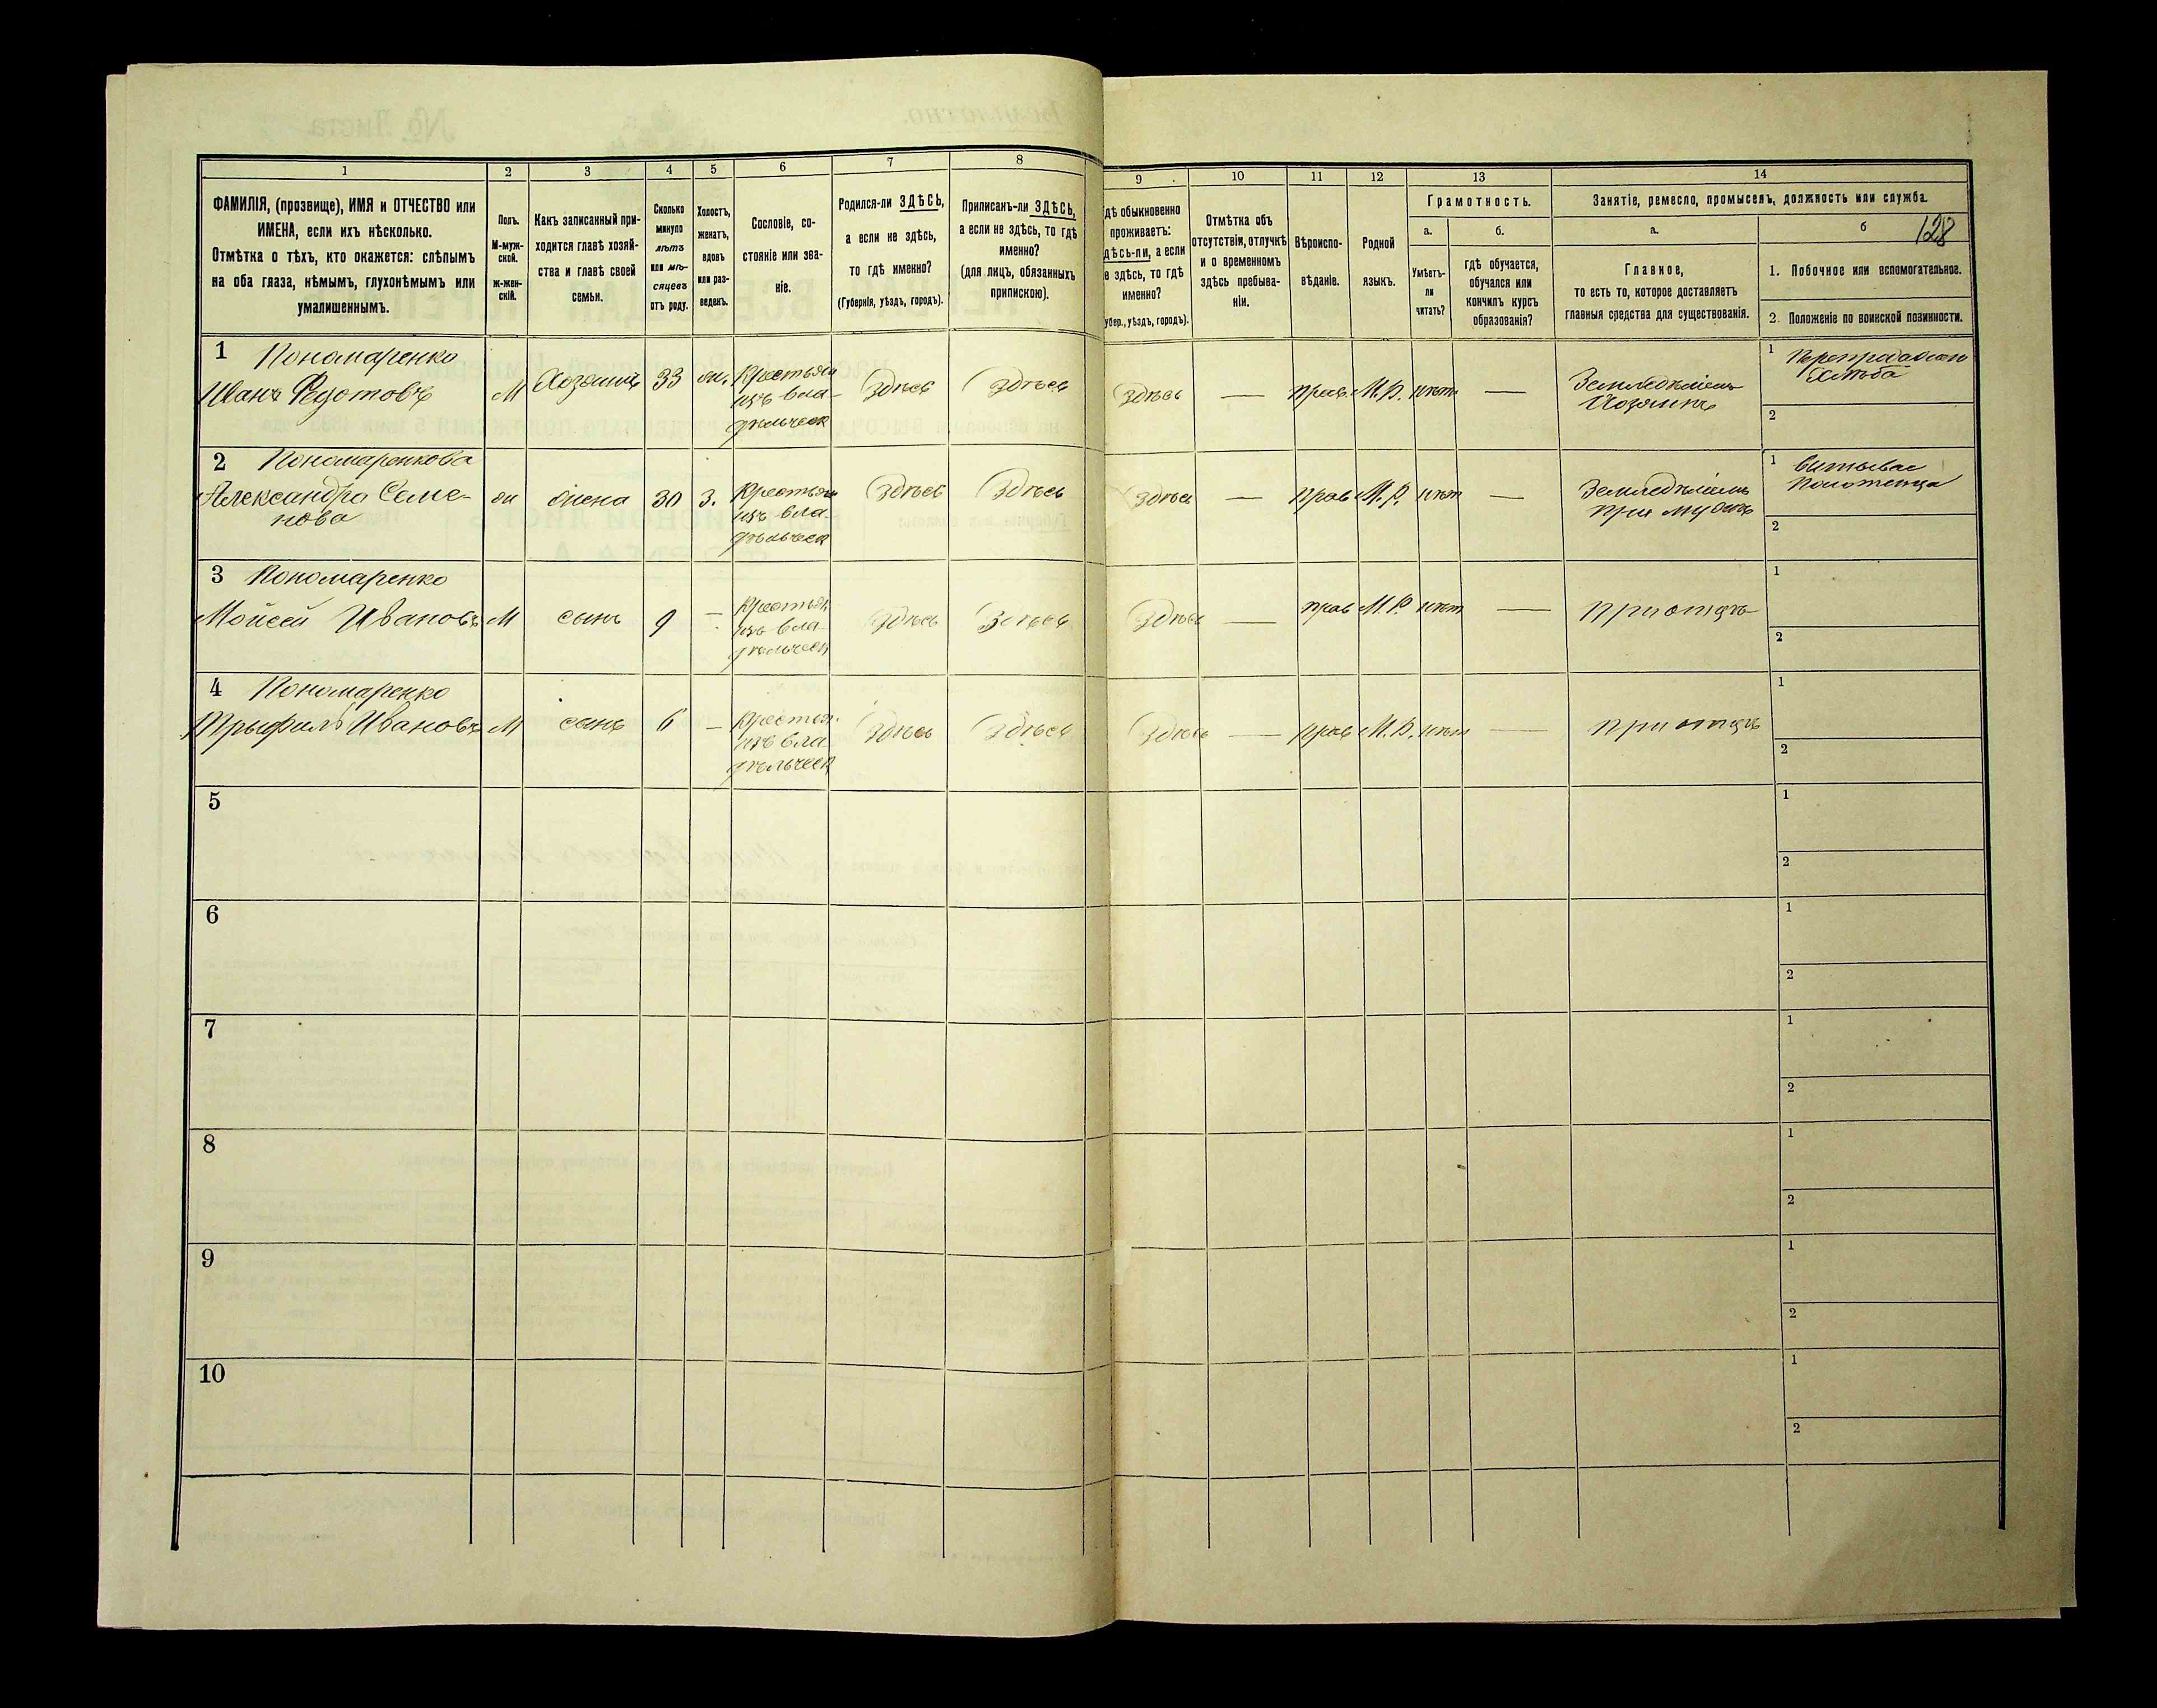 128
1
2
3
4
5
6
7
8
9
10
11
12
13
14
ФАМИЛІЯ, (прозвище), ИМЯ и ОТЧЕСТВО или
ИМЕНА, если ихъ нѣсколько.
Отмѣтка о тѣхъ, кто окажется: слѣпымъ
на оба глаза, нѣмымъ, глухонѣмымъ или
умалишеннымъ.
Полъ.
М-муж-
ской.
Ж-жен-
скій.
Какъ записанный при-
ходится главѣ хозяй-
ства и главѣ своей
семьи.
Сколько
минуло
лѣтъ
или мѣ-
сяцевъ
отъ роду.
Холостъ,
женатъ,
вдовъ
или раз-
веденъ.
Сословіе, со-
стояніе или зва-
ніе.
Родился-ли ЗДѢСЬ,
а если не здѣсь,
то гдѣ именно?
(Губернія, уѣздъ, городъ).
Приписанъ-ли ЗДѢСЬ,
а если не здѣсь, то гдѣ
именно?
(для лицъ, обязанныхъ
припискою).
дѣ обыкновенно
проживаетъ:
дѣсь-ли, а если
е здѣсь, то гдѣ
именно?
убер., уѣздъ, городъ).
Отмѣтка объ
отсутствіи, отлучкѣ
и о временномъ
здѣсь пребыва-
ніи.
Вѣроиспо-
вѣданіе.
Родной
языкъ.
Грамотность.
а.
Умѣетъ-
ли
читать?
б.
гдѣ обучается,
обучался или
кончилъ курсъ
образованія?
Занятіе, ремесло, промыселъ, должность или служба.
а.
Главное,
то есть то, которое доставляетъ
главныя средства для существованія.
б
1. Побочное или вспомогательное.
2. Положеніе по воинской повинности.
1 Пономаренко
Иванъ Федотовъ
М
Хозяинъ
33
ж.
Крестьян
изъ вла-
дѣльческ
Здѣсь
Здѣсь
Здѣсь
—
прав.
М.Р.
нѣт
—
Земледѣлецъ
Хозяинъ
1
хлѣба
2
2 Пономаренкова
Александра Семе-
нова
ж
жена
30
З.
Крестьян
изъ вла-
дѣльческ
Здѣсь
Здѣсь
Здѣсь
—
прав
М.Р.
нѣт
—
Земледѣлецъ
при мужѣ
1
2
3 Пономаренко
Мойсей Ивановъ
М
сынъ
9
—
Крестьян
изъ вла-
дѣльческ
Здѣсь
Здѣсь
Здѣсь
—
прав
М.Р.
нѣт
—
при отцѣ
1
2
4 Пономаренко
Трыфилъ Ивановъ
М
сынъ
6
—
Крестьян
изъ вла
дѣльческ
Здѣсь
Здѣсь
Здѣсь
—
прав
М.Р.
нѣт
—
при отцѣ
1
2
5
1
2
6
1
2
7
1
2
8
1
2
9
1
2
10
1
2